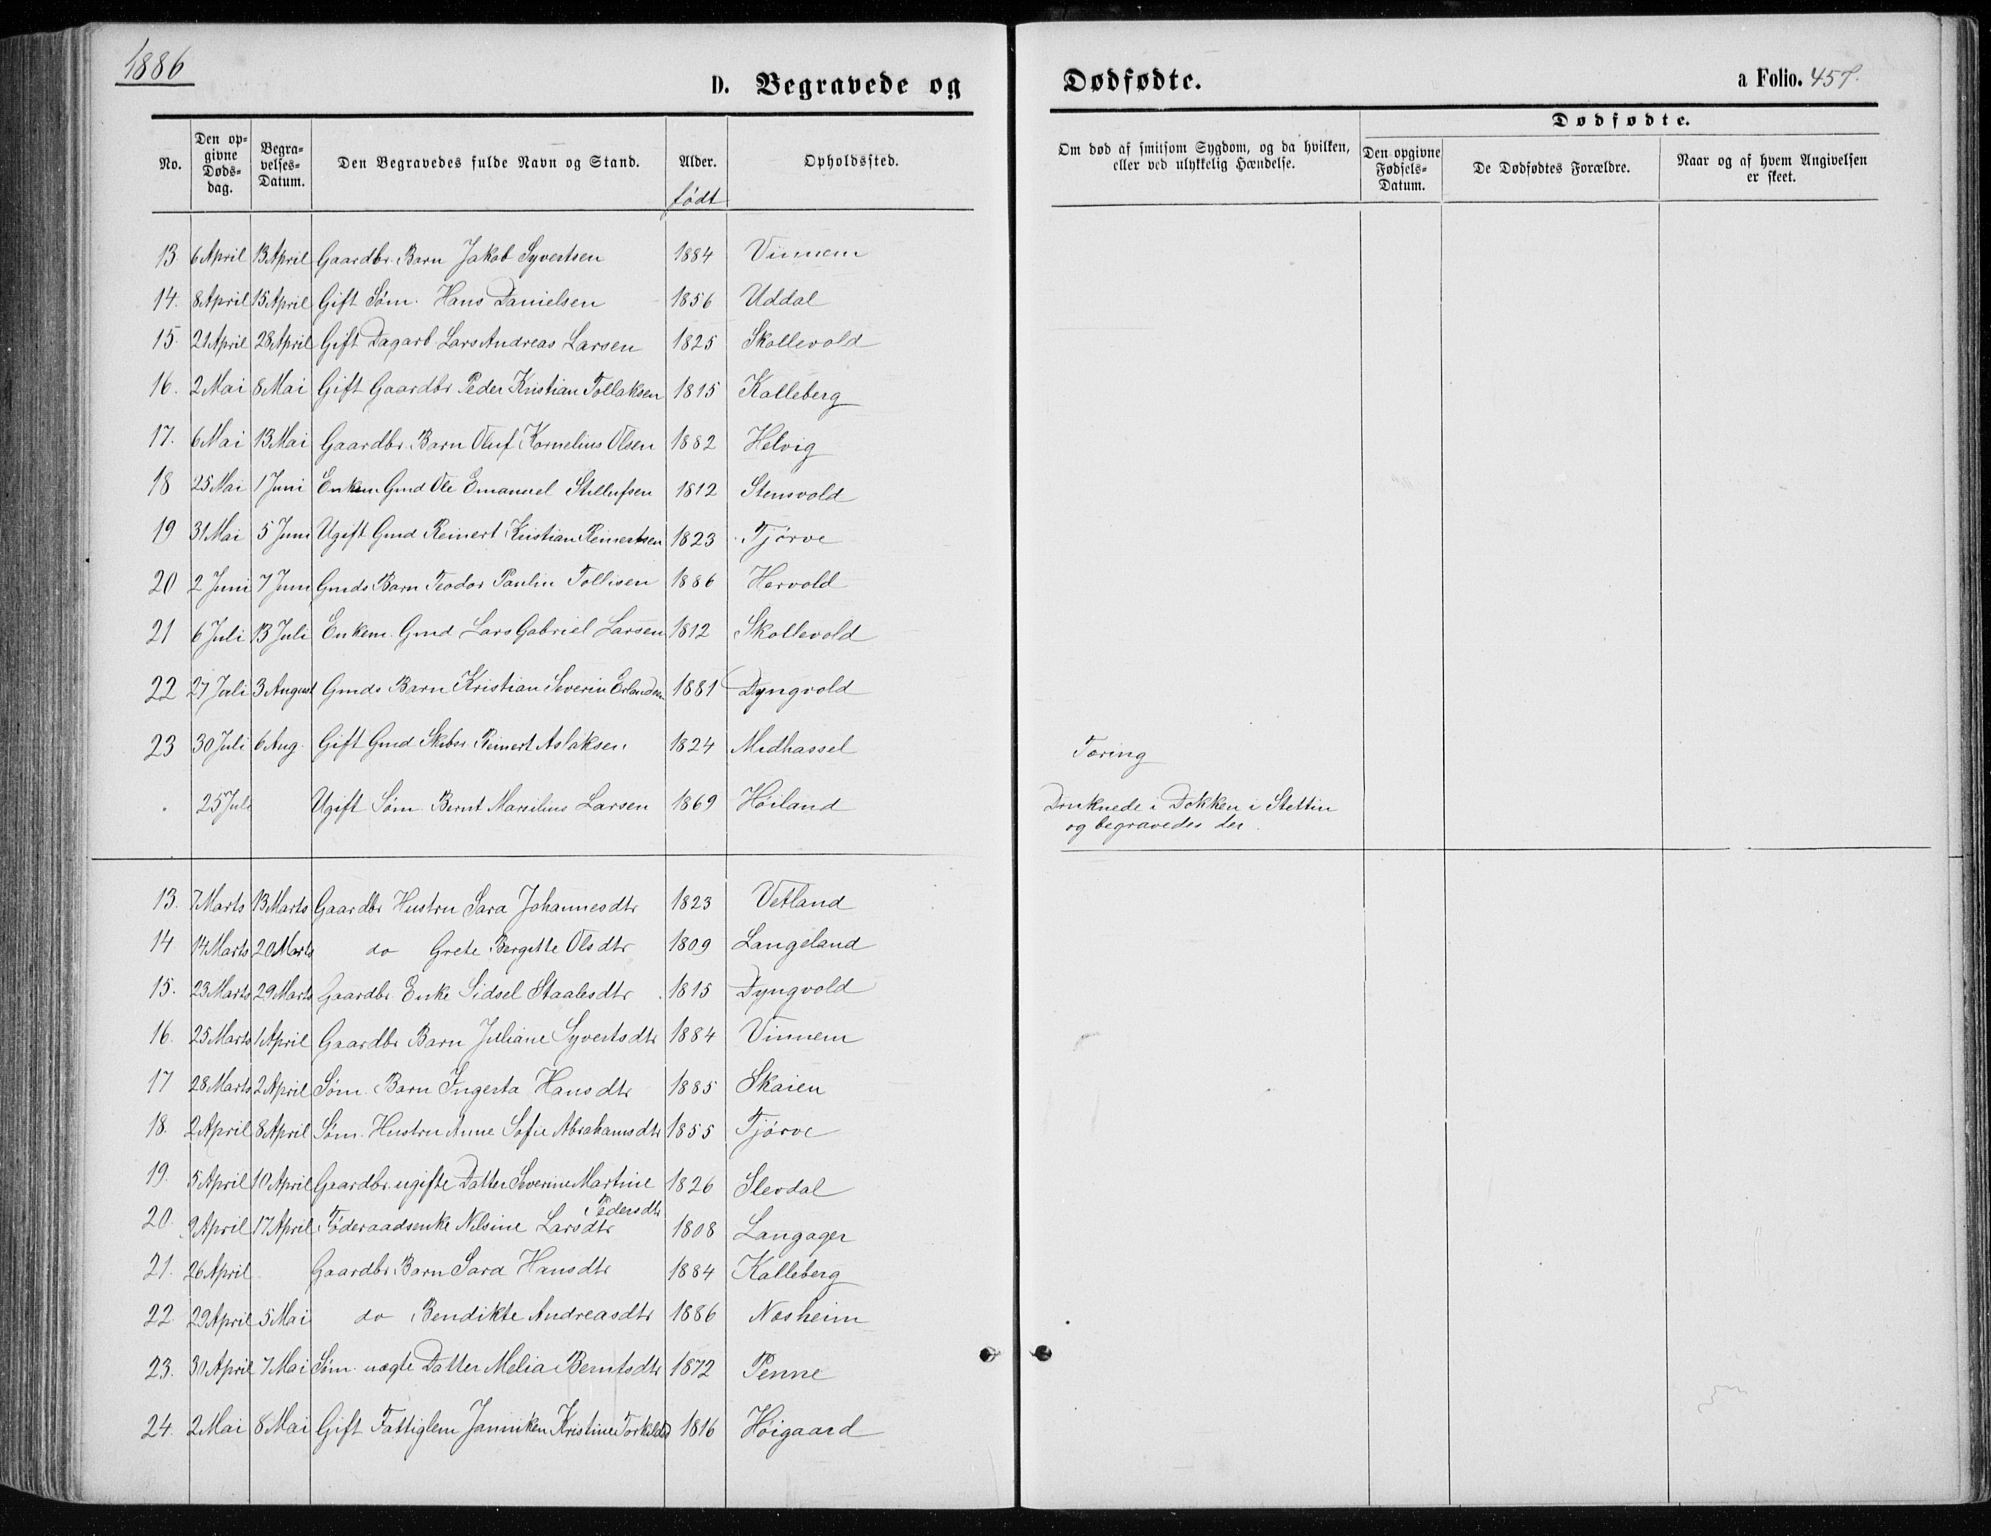 1886
D. Begravede og Dødfødte.
a Folio. 457.
No.
Den opgivne Dødsdag.
Begravelses-Datum.
Den Begravedes fulde Navn og Stand.
Alder.
født
Opholdssted.
Om død af smitsom Sygdom, og da hvilken, eller ved ulykkelig Hændelse.
Dødfødte.
Den opgivne Fødsels-Datum.
De Dødfødtes Forældre.
Naar og af hvem Angivelsen er skeet.
13. 6 April 13 April Gaardbr. Barn Jakob Syvertsen 1884 Vinnem
14. 8 April 15 April Gift Søm. Hans Danielsen 1856 Uddal
15. 21 April 28 April Gift Dagarb. Lars Andreas Larsen 1825 Skollevold
16. 2 Mai 8 Mai Gift Gaardbr. Peder Kristian Tollaksen 1815 Kalleberg
17. 6 Mai 13 Mai Gaardbr. Barn Oluf Kornelius Olsen 1882 Helvig
18 25 Mai 1 Juni Enkem Gmd Ole Emanuel Stillufsen 1812 Stensvold
19 31 Mai 5 Juni Ugift Gmd Reinert Kristian Reinertsen 1823 Tjørve
20 2 Juni 7 Juni Gmds Barn Teodor Paulin Tollisen 1886 Hervold
21 6 Juli 13 Juli Enkem. Gmd Lars Gabriel Larsen 1812 Skollevold
22 27 Juli 3 August Gmds Barn Kristian Severin Erlandsen 1881 Dyngvold
23 30 Juli 6 Aug. Gift Gmd Skibsr. Reinert Aslaksen 1824 Midhassel Tæring
25 Juli Ugift Søm. Bernt Marselius Larsen 1869 Høiland Druknede i Dokken i Stettin
og begravedes der.
13. 7 Marts 13 Marts Gaardbr Hustru Sara Johannesdtr 1823 Vetland
14 14 Marts 20 Marts do Grete Bergitte Olsdtr 1809 Langeland
15. 23 Marts 29 Marts Gaardbr. Enke Sidsel Staalesdtr 1815 Dyngvold
16. 25 Marts 1 April Gaardbr Barn Juliane Syvertsdtr 1884 Vinnem
17 28 Marts 2 April Søm. Barn Ingesta Hansdtr 1885 Skaien
18. 2 April 8 April Søm. Hustru Anne Sofie Abrahamsdtr 1855 Tjørve
19. 5 April 10 April Gaardbr. ugifte Datter Severine Martine 1826 Slevdal
Pedersdtr
20. 9 April 17 April Føderaadsenke Nilsine Larsdtr 1808 Langager
21. 26 April Gaardbr Barn Sara Hansdtr 1884 Kalleberg
22. 29 April 5 Mai do Bendikte Andreasdtr 1886 Nesheim
23. 30 April 7 Mai Søm. uægte Datter Melia Berntsdtr 1872 Penne
24. 2 Mai 8 Mai Gift Fattiglem Janniken Kristine Torkildsd 1816 Høigaard